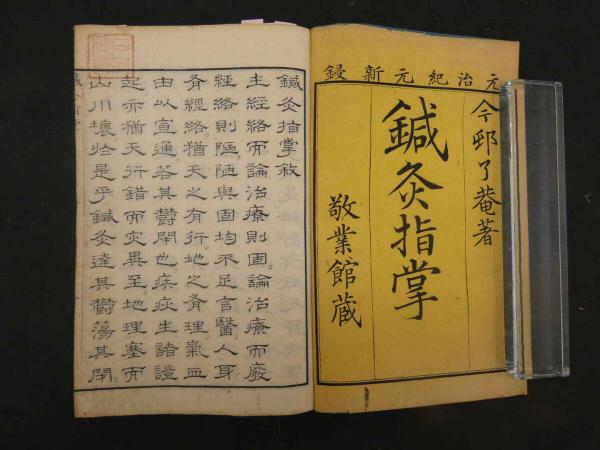 元治紀元新鋟
今邨了菴著
鍼灸指掌
敬業館蔵
鍼灸指掌敘
主經絡而論治療則固論治療而廢
經絡則陋陋與固均不足言醫人身
有經絡猶天之有行地之有理氣血
由以宣通若其鬱閉也疾疢生諸證
起亦猶天行錯而災異至地理塞而
山川壞於是乎鍼灸達其鬱蕩其閉